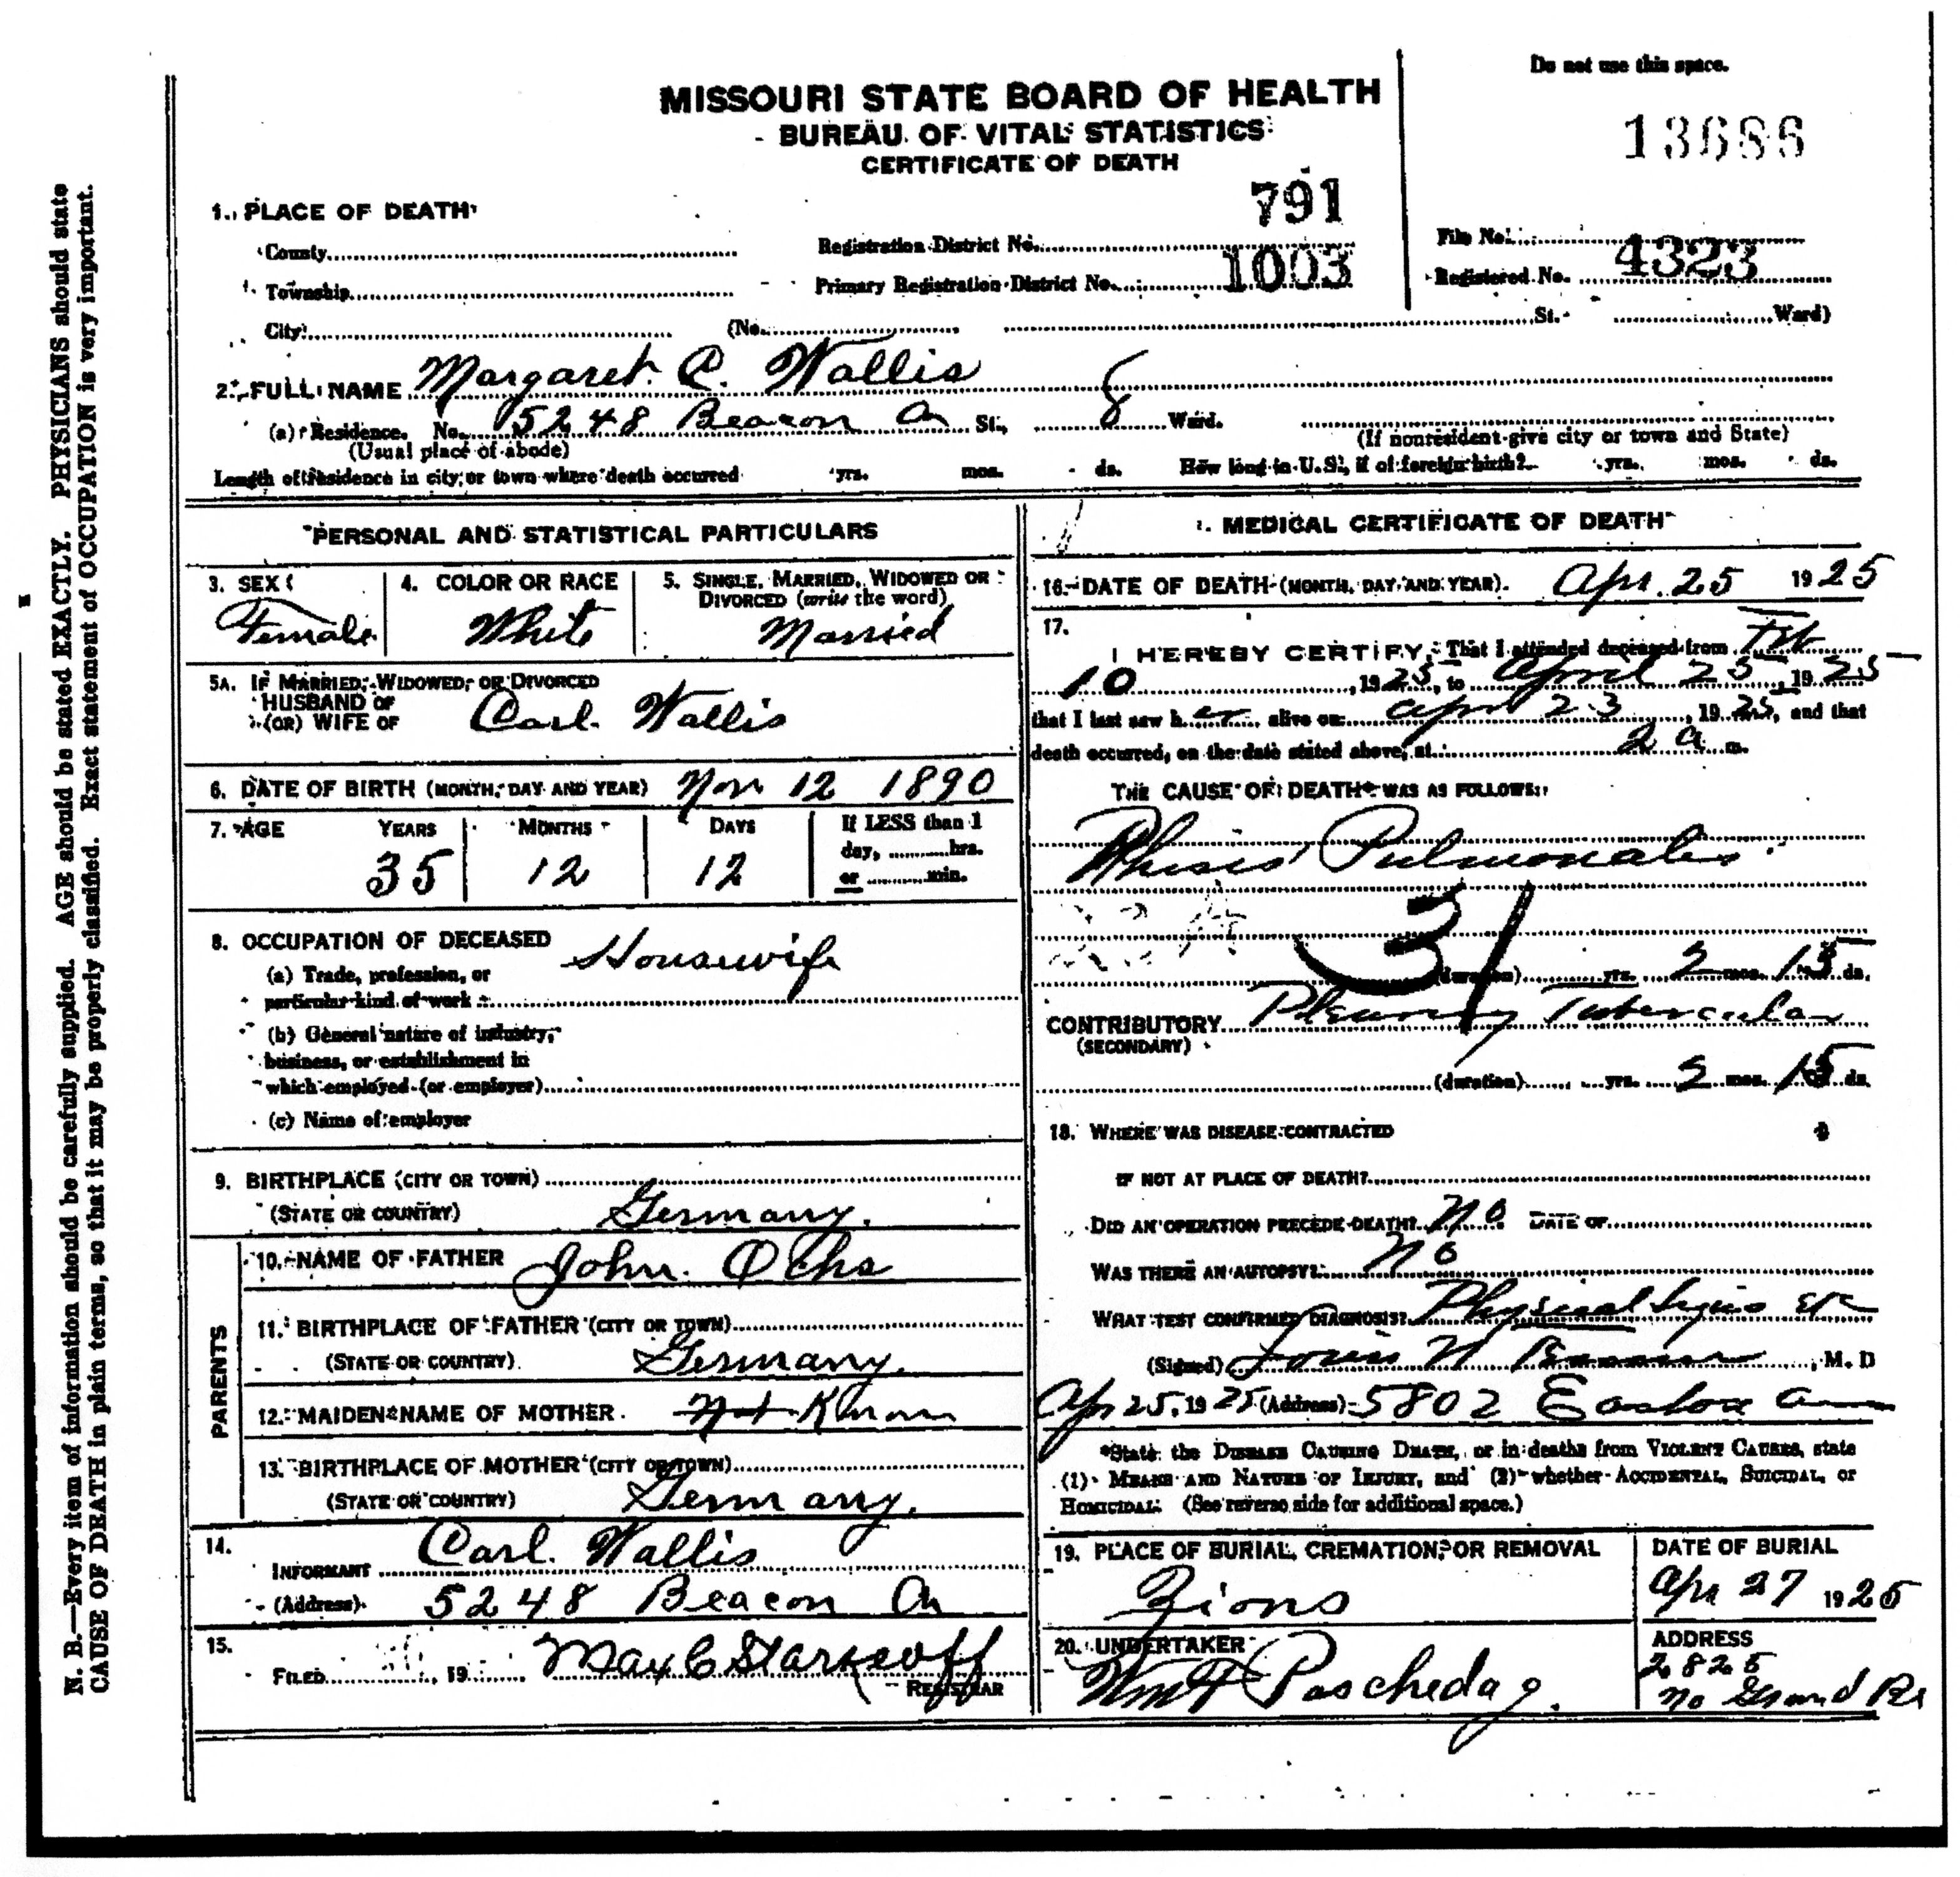 Do not use this space.
MISSOURI STATE BOARD OF HEALTH
BUREAU OF VITAL STATISTICS
CERTIFICATE OF DEATH
13686
1. PLACE OF DEATH
County
Township
City (No. St. Ward)
Registration District No. 791
Primary Registration District No. 1003
File No.
Registered No. 4323
2. FULL NAME Margaret C. Wallis
(a) Residence. No. 5248 Beacon Av St., 8 Ward.
(Usual place of abode) (If nonresident give city or town and State)
Length of residence in city or town where death occurred yrs. mos. ds. How long in U.S., if of foreign birth? yrs. mos. ds.
PERSONAL AND STATISTICAL PARTICULARS
3. SEX
Female
4. COLOR OR RACE
White
5. SINGLE, MARRIED, WIDOWED OR DIVORCED (write the word)
Married
5A. IF MARRIED, WIDOWED, OR DIVORCED
HUSBAND OF
(OR) WIFE OF Carl Wallis
6. DATE OF BIRTH (MONTH, DAY AND YEAR) Nov 12 1890
7. AGE YEARS MONTHS DAYS If LESS than 1
day, hrs.
35 12 12 or min.
8. OCCUPATION OF DECEASED Housewife
(a) Trade, profession, or
particular kind of work
(b) General nature of industry,
business, or establishment in
which employed (or employer)
(c) Name of employer
9. BIRTHPLACE (CITY OR TOWN)
(STATE OR COUNTRY) Germany.
PARENTS
10. NAME OF FATHER John. Ochs
11. BIRTHPLACE OF FATHER (CITY OR TOWN)
(STATE OR COUNTRY) Germany.
12. MAIDEN NAME OF MOTHER Not Known
13. BIRTHPLACE OF MOTHER (CITY OR TOWN)
(STATE OR COUNTRY) Germany.
14.
INFORMANT Carl. Wallis
(Address) 5248 Beacon Av
15.
FILED 19 Max C Starkloff
REGISTRAR
MEDICAL CERTIFICATE OF DEATH
16. DATE OF DEATH (MONTH, DAY AND YEAR) Apr. 25 1925
17.
I HEREBY CERTIFY, That I attended deceased from Feb
10, 1925, to April 25, 1925
that I last saw her alive on April 23, 1925, and that
death occurred, on the date stated above, at 2 a m.
THE CAUSE OF DEATH* WAS AS FOLLOWS:
Phisis Pulmonales
31
(duration) yrs. 2 mos. 15 ds.
CONTRIBUTORY Pleurisy Tubercular
(SECONDARY)
(duration) yrs. 2 mos. 15 ds.
18. WHERE WAS DISEASE CONTRACTED
IF NOT AT PLACE OF DEATH?
DID AN OPERATION PRECEDE DEATH? No DATE OF
WAS THERE AN AUTOPSY? No
WHAT TEST CONFIRMED DIAGNOSIS? Physical Signs etc
(Signed) Louis H , M. D
Apr 25, 1925 (Address) 5802 Easton Av
*State the DISEASE CAUSING DEATH, or in deaths from VIOLENT CAUSES, state
(1) MEANS AND NATURE OF INJURY, and (2) whether ACCIDENTAL, SUICIDAL, or
HOMICIDAL. (See reverse side for additional space.)
19. PLACE OF BURIAL, CREMATION, OR REMOVAL
Zions
DATE OF BURIAL
Apr 27 1925
20. UNDERTAKER
Wm F Paschedag.
ADDRESS
2825
No Grand Bl
N. B.—Every item of information should be carefully supplied. AGE should be stated EXACTLY. PHYSICIANS should state
CAUSE OF DEATH in plain terms, so that it may be properly classified. Exact statement of OCCUPATION is very important.